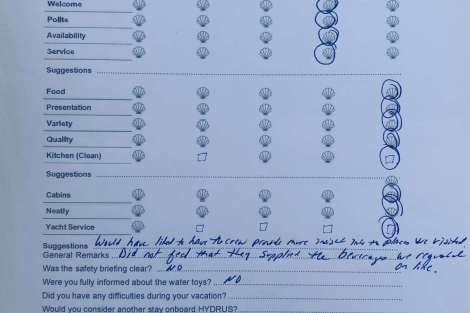 Welcome
Polite
Availability
Service
Suggestions
Food
Presentation
Variety
Quality
Kitchen (Clean)
Suggestions
Cabins
Neatly
Yacht Service
Suggestions Would have liked to have the crew provide more insight into the places we visited
General Remarks Did not feel that they supplied the beverages we requested
on line.
Was the safety briefing clear? NO
Were you fully informed about the water toys? NO
Did you have any difficulties during your vacation?
Would you consider another stay onboard HYDRUS?